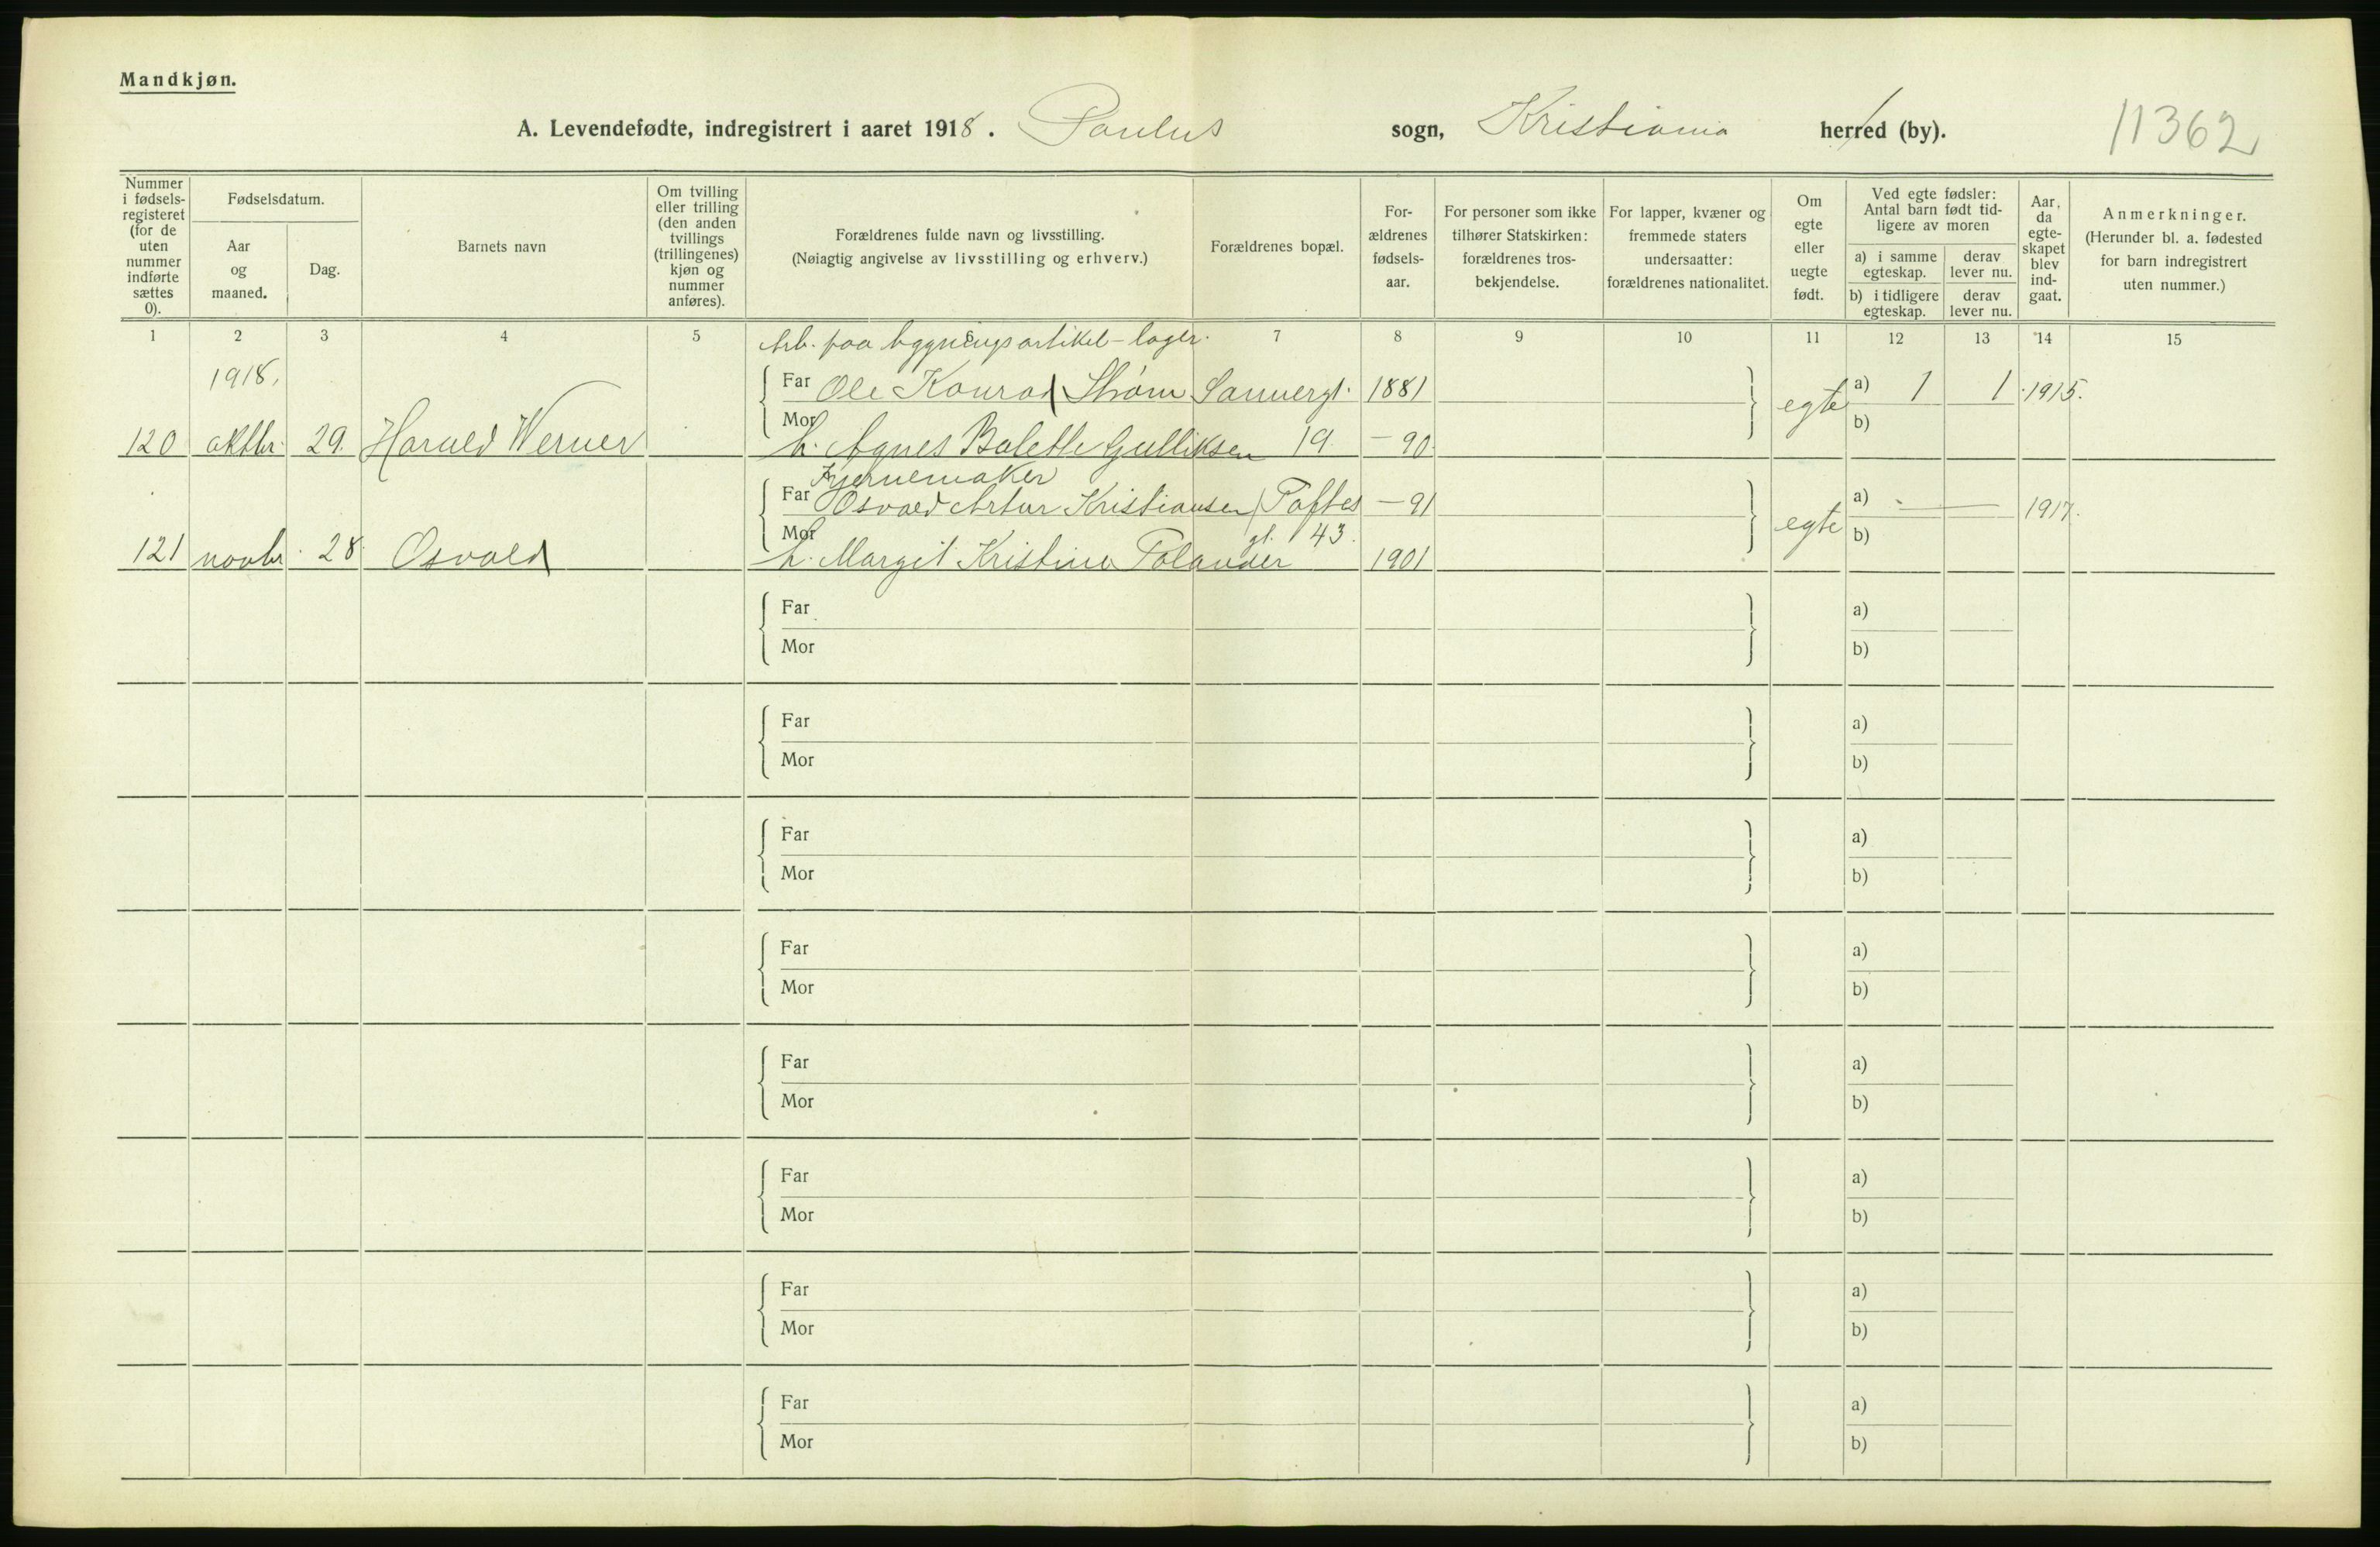 Mandkjøn.
A. Levendefødte, indregistrert i aaret 1918. Paulus sogn, Kristiania herred (by). 11362
Nummer i fødsels-registeret (for de uten nummer indførte sættes 0).
Fødselsdatum.
Aar og maaned.
Dag.
Barnets navn
Om tvilling eller trilling (den anden tvillings (trillingenes) kjøn og nummer anføres).
Forældrenes fulde navn og livsstilling.
(Nøiagtig angivelse av livsstilling og erhverv.)
Forældrenes bopæl.
For-ældrenes fødsels-aar.
For personer som ikke tilhører Statskirken: forældrenes tros-bekjendelse.
For lapper, kvæner og fremmede staters undersaatter: forældrenes nationalitet.
Om egte eller uegte født.
Ved egte fødsler: Antal barn født tid-ligere av moren
a) i samme egteskap.
derav lever nu.
b) i tidligere egteskap.
derav lever nu.
Aar, da egte-skapet blev ind-gaat.
Anmerkninger.
(Herunder bl. a. fødested for barn indregistrert uten nummer.)
1 2 3 4 5 6 7 8 9 10 11 12 13 14 15
Arb. paa bygningsartikel-lager.
1918.
Far Ole Konrad Strøm Sannergt. 1881 egte a) 1 1 1915.
120 oktbr. 29. Harald Werner Mor h. Agnes Bolette Gulliksen 19. – 90. b)
Kjernemaker
Far Osvald Artur Kristiansen Toftes – 91 egte a) - — 1917.
gt. 43.
121 novbr. 28. Osvald Mor h. Margit Kristine Polander 1901 b)
Far a)
Mor b)
Far a)
Mor b)
Far a)
Mor b)
Far a)
Mor b)
Far a)
Mor b)
Far a)
Mor b)
Far a)
Mor b)
Far a)
Mor b)